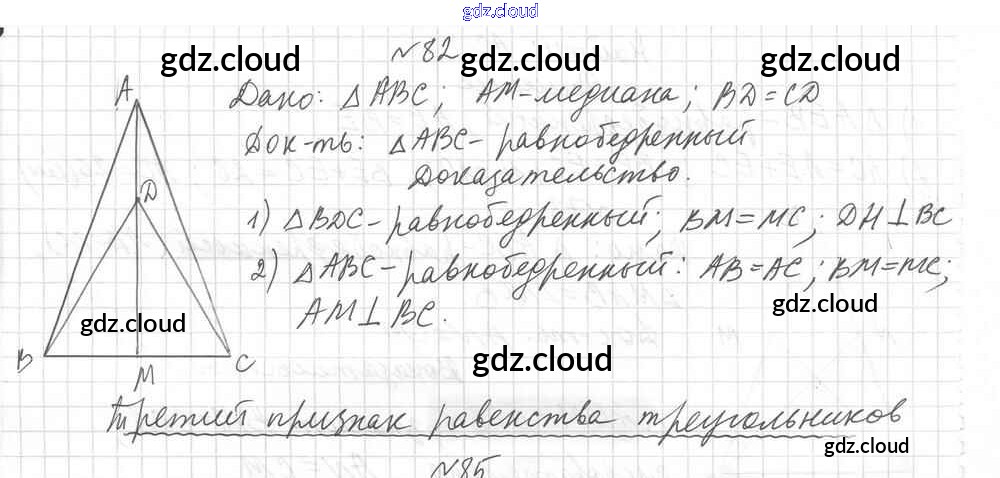 gdz.cloud
№82
gdz.cloud gdz.cloud gdz.cloud
A
Дано: △ABC; AM-медиана; BD=CD
Док-ть: △ABC-равнобедренный
Доказательство.
D
1) △BDC-равнобедренный; BM=MC; DH⊥BC
2) △ABC-равнобедренный: AB=AC; BM=MC;
gdz.cloud
AM⊥BC.
gdz.cloud
B C
gdz.cloud
M
Третий признак равенства треугольников
gdz.cloud
№85